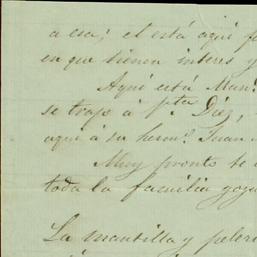 a esa; el está aquí
en que tienen interes y
Aquí está Man.
se trajo á p.ta Diez,
aquí á su herm.º Juan
Muy pronto te
toda la familia
La mantilla y